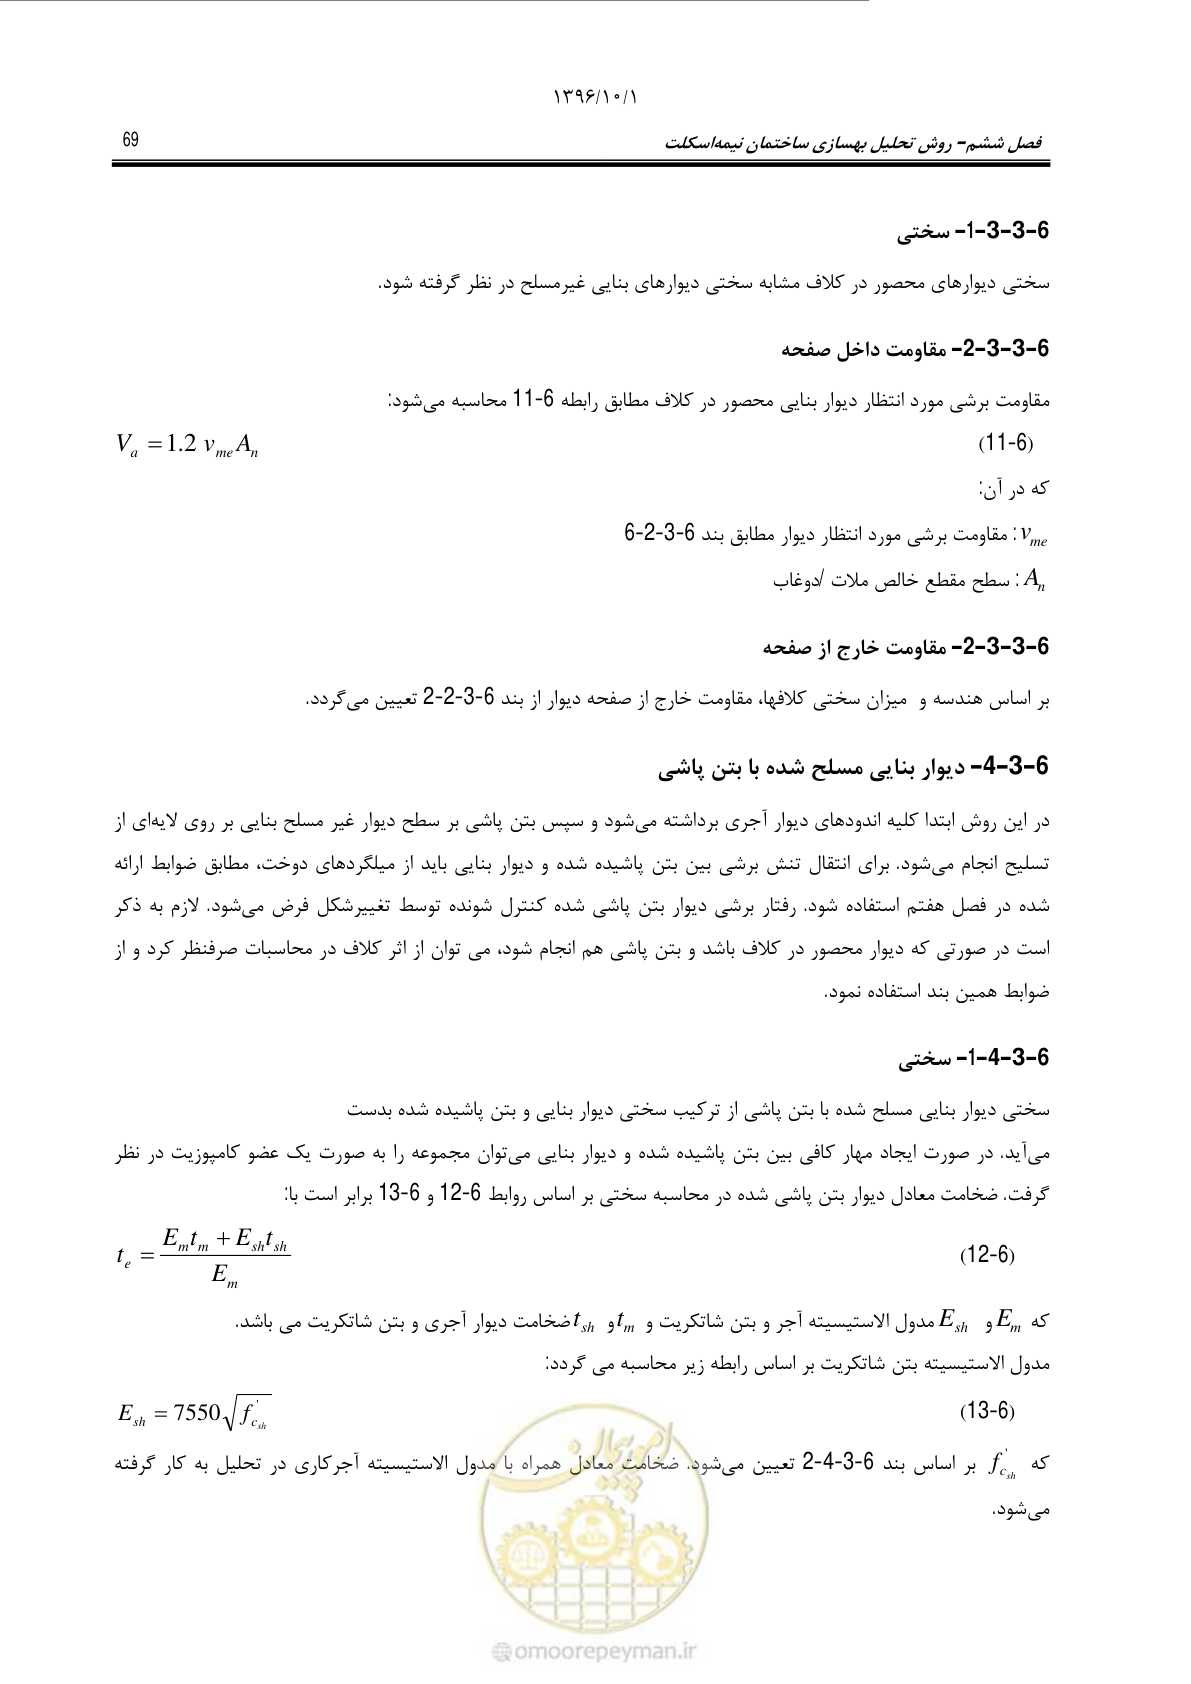 ۱۳۹۶/۱۰/۱
فصل ششم- روش تحلیل بهسازی ساختمان نیمه‌اسکلت
69
6-3-3-1- سختی
سختی دیوارهای محصور در کلاف مشابه سختی دیوارهای بنایی غیرمسلح در نظر گرفته شود.
6-3-3-2- مقاومت داخل صفحه
مقاومت برشی مورد انتظار دیوار بنایی محصور در کلاف مطابق رابطه 6-11 محاسبه می‌شود:
(11-6) V_a = 1.2 v_{me} A_n
که در آن:
v_{me} : مقاومت برشی مورد انتظار دیوار مطابق بند 6-3-2-6
A_n : سطح مقطع خالص ملات /دوغاب
6-3-3-2- مقاومت خارج از صفحه
بر اساس هندسه و میزان سختی کلافها، مقاومت خارج از صفحه دیوار از بند 6-3-2-2 تعیین می‌گردد.
6-3-4- دیوار بنایی مسلح شده با بتن پاشی
در این روش ابتدا کلیه اندودهای دیوار آجری برداشته می‌شود و سپس بتن پاشی بر سطح دیوار غیر مسلح بنایی بر روی لایه‌ای از
تسلیح انجام می‌شود. برای انتقال تنش برشی بین بتن پاشیده شده و دیوار بنایی باید از میلگردهای دوخت، مطابق ضوابط ارائه
شده در فصل هفتم استفاده شود. رفتار برشی دیوار بتن پاشی شده کنترل شونده توسط تغییرشکل فرض می‌شود. لازم به ذکر
است در صورتی که دیوار محصور در کلاف باشد و بتن پاشی هم انجام شود، می توان از اثر کلاف در محاسبات صرفنظر کرد و از
ضوابط همین بند استفاده نمود.
6-3-4-1- سختی
سختی دیوار بنایی مسلح شده با بتن پاشی از ترکیب سختی دیوار بنایی و بتن پاشیده شده بدست
می‌آید. در صورت ایجاد مهار کافی بین بتن پاشیده شده و دیوار بنایی می‌توان مجموعه را به صورت یک عضو کامپوزیت در نظر
گرفت. ضخامت معادل دیوار بتن پاشی شده در محاسبه سختی بر اساس روابط 6-12 و 6-13 برابر است با:
(12-6) t_e = \frac{E_m t_m + E_{sh} t_{sh}}{E_m}
که E_m و E_{sh} مدول الاستیسیته آجر و بتن شاتکریت و t_m و t_{sh} ضخامت دیوار آجری و بتن شاتکریت می باشد.
مدول الاستیسیته بتن شاتکریت بر اساس رابطه زیر محاسبه می گردد:
(13-6) E_{sh} = 7550 \sqrt{f'_{c_{sh}}}
که f'_{c_{sh}} بر اساس بند 6-3-4-2 تعیین می‌شود. ضخامت معادل همراه با مدول الاستیسیته آجرکاری در تحلیل به کار گرفته
می‌شود.
امور پیمان
@omoorepeyman.ir